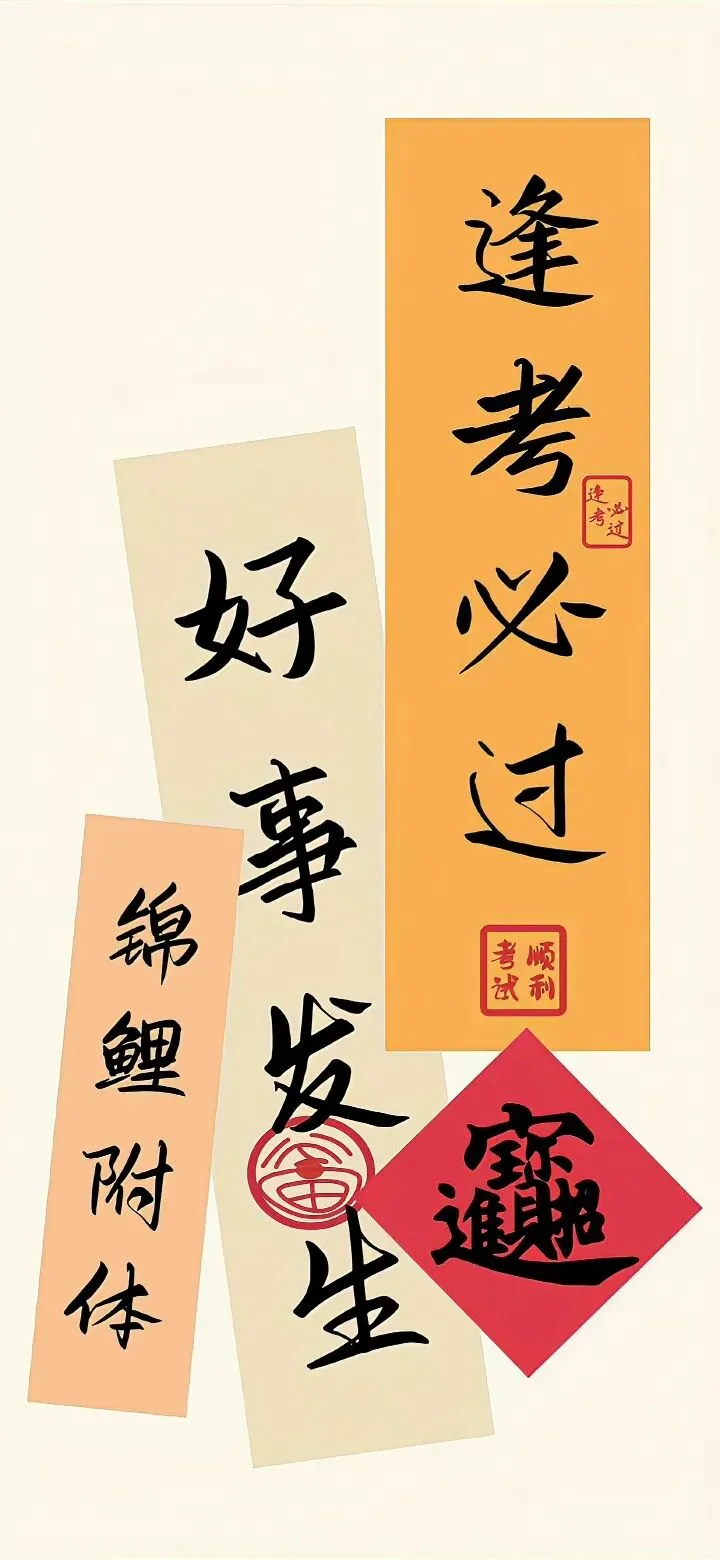 逢考必过
逢考必过
顺利考试
好事发生
锦鲤附体
招财进宝